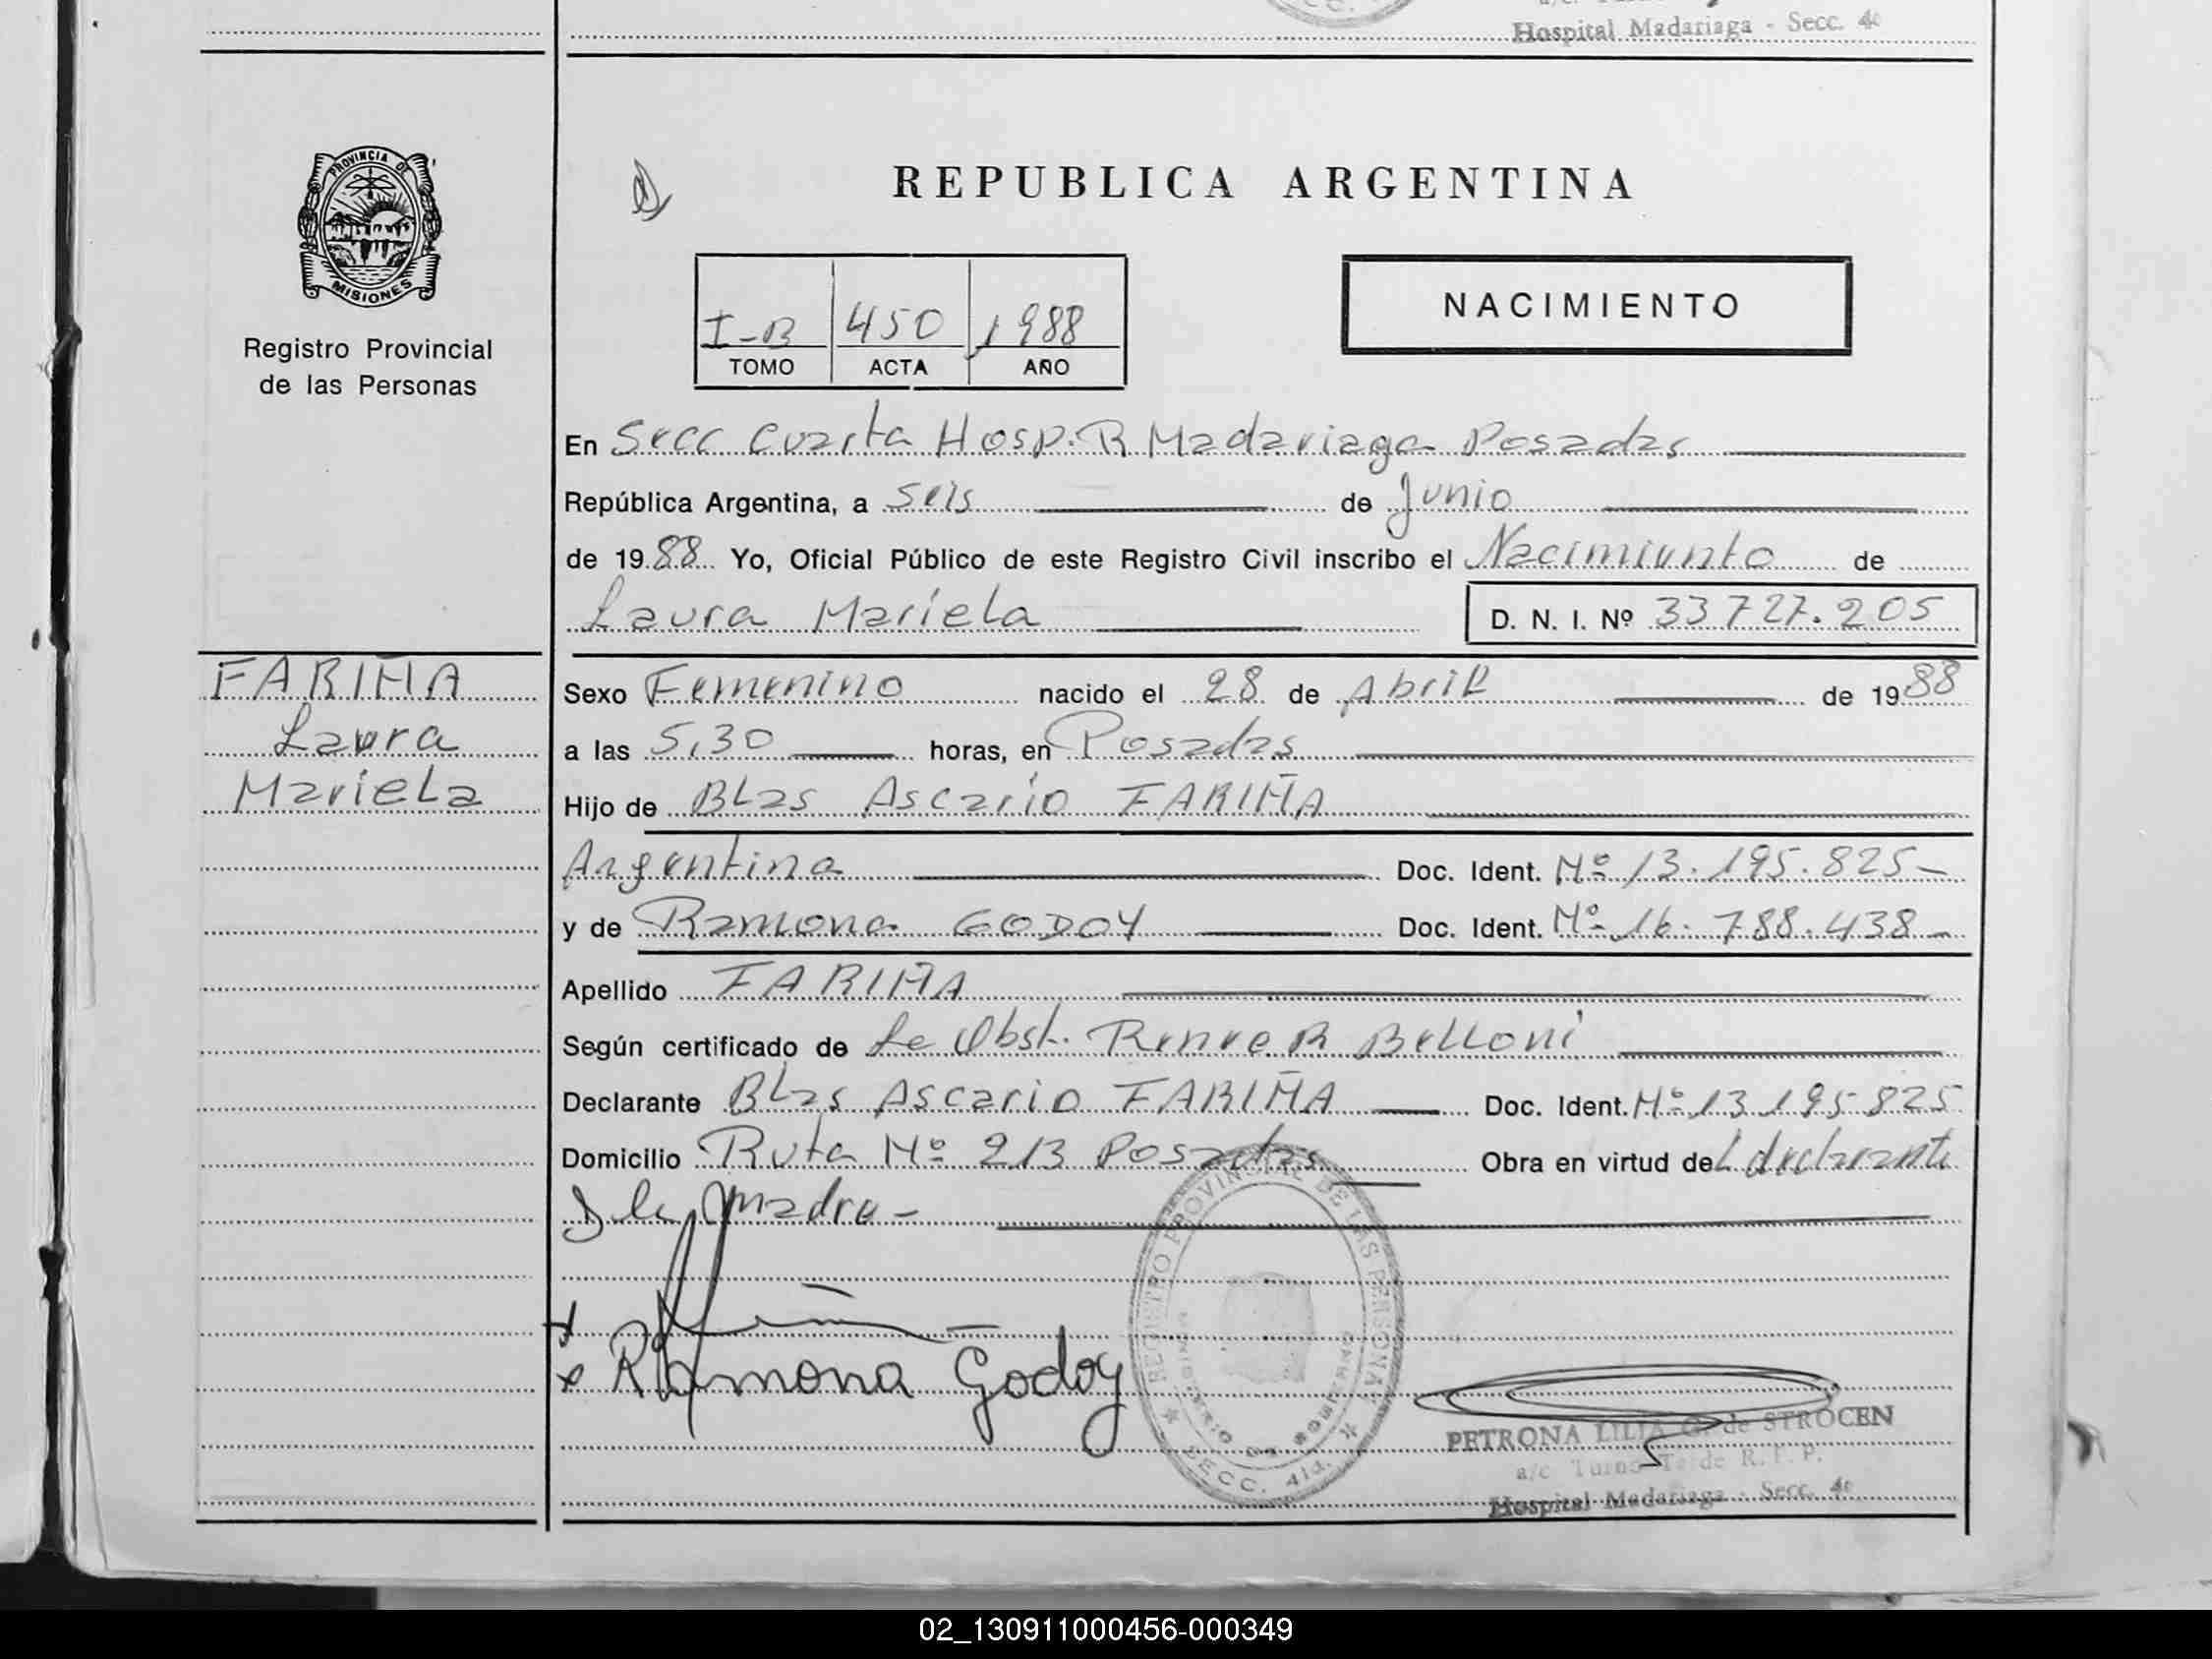 Hospital Madariaga - Secc. 4ª
PROVINCIA DE
MISIONES
Registro Provincial
de las Personas
REPUBLICA ARGENTINA
NACIMIENTO
I-B 450 1988
TOMO ACTA AÑO
En Secc Cuarta Hosp. R Madariaga Posadas
República Argentina, a Seis de Junio
de 1988 Yo, Oficial Público de este Registro Civil inscribo el Nacimiento de
Laura Mariela D. N. I. Nº 33727.205
FARIÑA
Laura
Mariela
Sexo Femenino nacido el 28 de Abril de 1988
a las 5,30 horas, en Posadas
Hijo de Blas Ascario FARIÑA
Argentina Doc. Ident. Nº 13.195.825-
y de Ramona GODOY Doc. Ident. Nº 16.788.438-
Apellido FARIÑA
Según certificado de La Obst. Renee R Belloni
Declarante Blas Ascario FARIÑA Doc. Ident. Nº 13195825
Domicilio Ruta Nº 213 Posadas Obra en virtud del declarante
la Madre-
x
x Ramona Godoy
REGISTRO PROVINCIAL DE LAS PERSONAS
MINISTERIO DE GOBIERNO
SECC. 4ta.
PETRONA LILIA G. de STROCEN
a/c Turno Tarde R. P. P.
Hospital Madariaga - Secc. 4ª
02_130911000456-000349